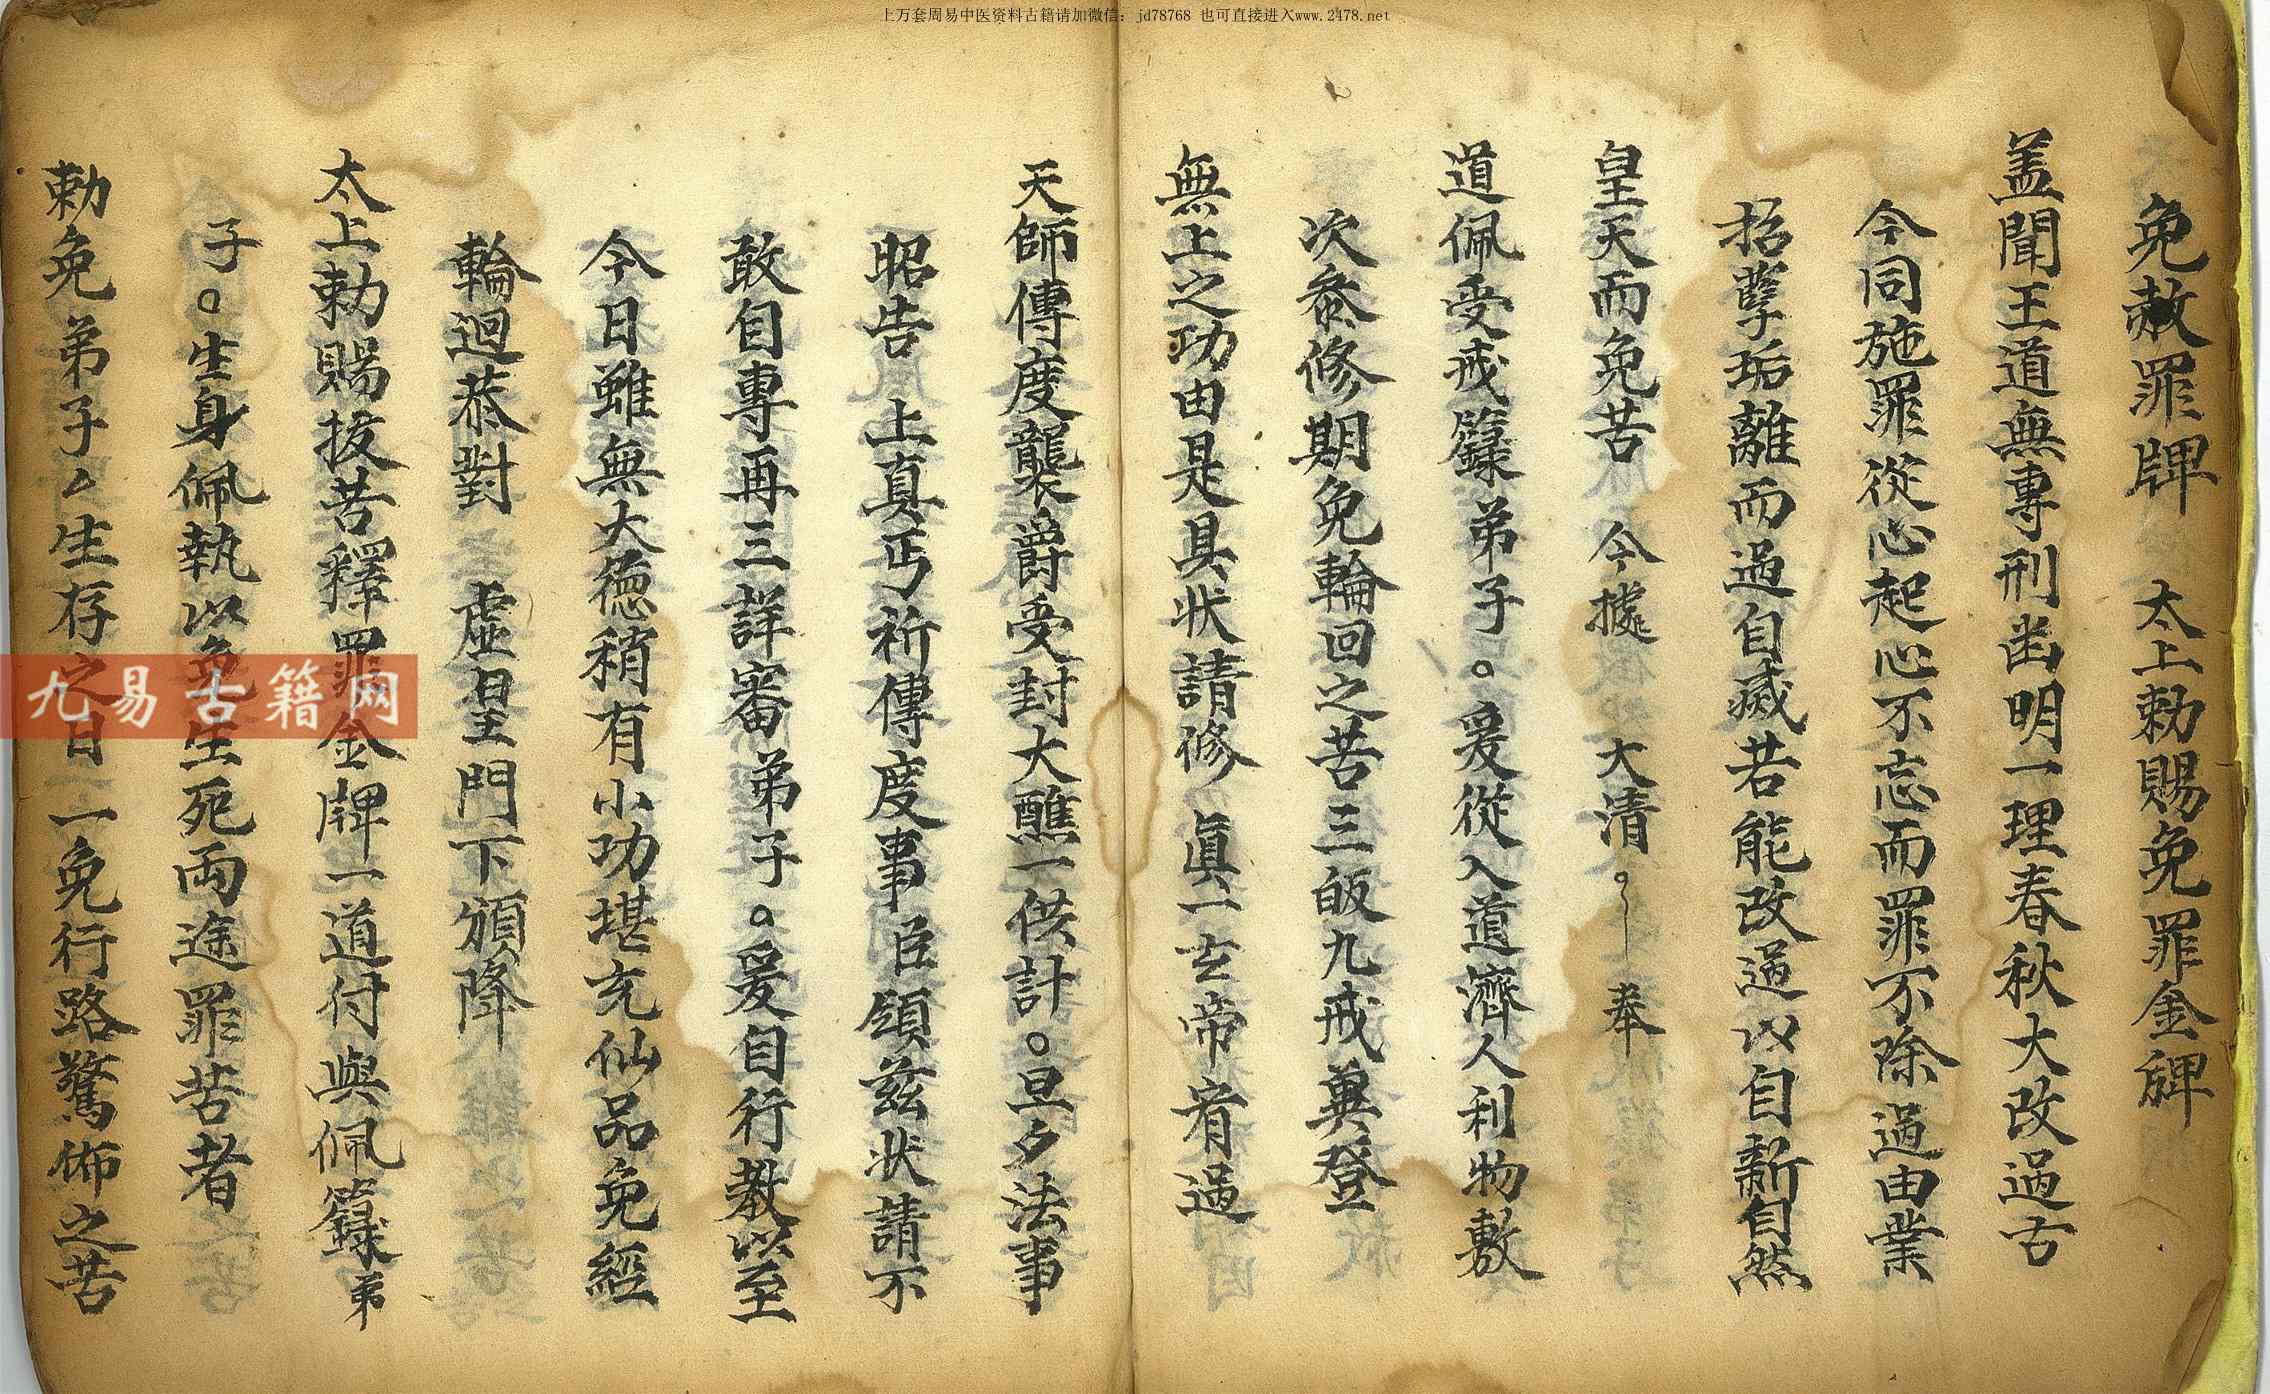 上万套周易中医资料古籍请加微信： jd78768 也可直接进入www.2478.net
免赦罪牌　太上勅賜免罪金牌
盖聞王道無專刑幽明一理春秋大改過古
今同施罪從心起心不忘而罪不除過由業
招孽垢離而過自滅若能改過以自新自然
皇天而免苦　今據　大清。　奉
道佩受戒籙弟子。爰從入道濟人利物敷
次叅修期免輪回之苦三皈九戒兾登
無上之功由是具状請修　眞一玄帝宥過
天師傳度襲爵受封大醮一供計。旦夕法事
昭告　上真丐祈傳度事臣領兹状請不
敢自專再三詳審弟子。爰自行教以至
今日雖無大德稍有小功堪充仙品免經
輪迴恭對　虚皇門下頒降
太上勅賜拔苦釋罪金牌一道付與佩籙弟
子。生身佩執以免生死両途罪苦者
勅免弟子厶生存之日一免行路驚怖之苦
九易古籍网